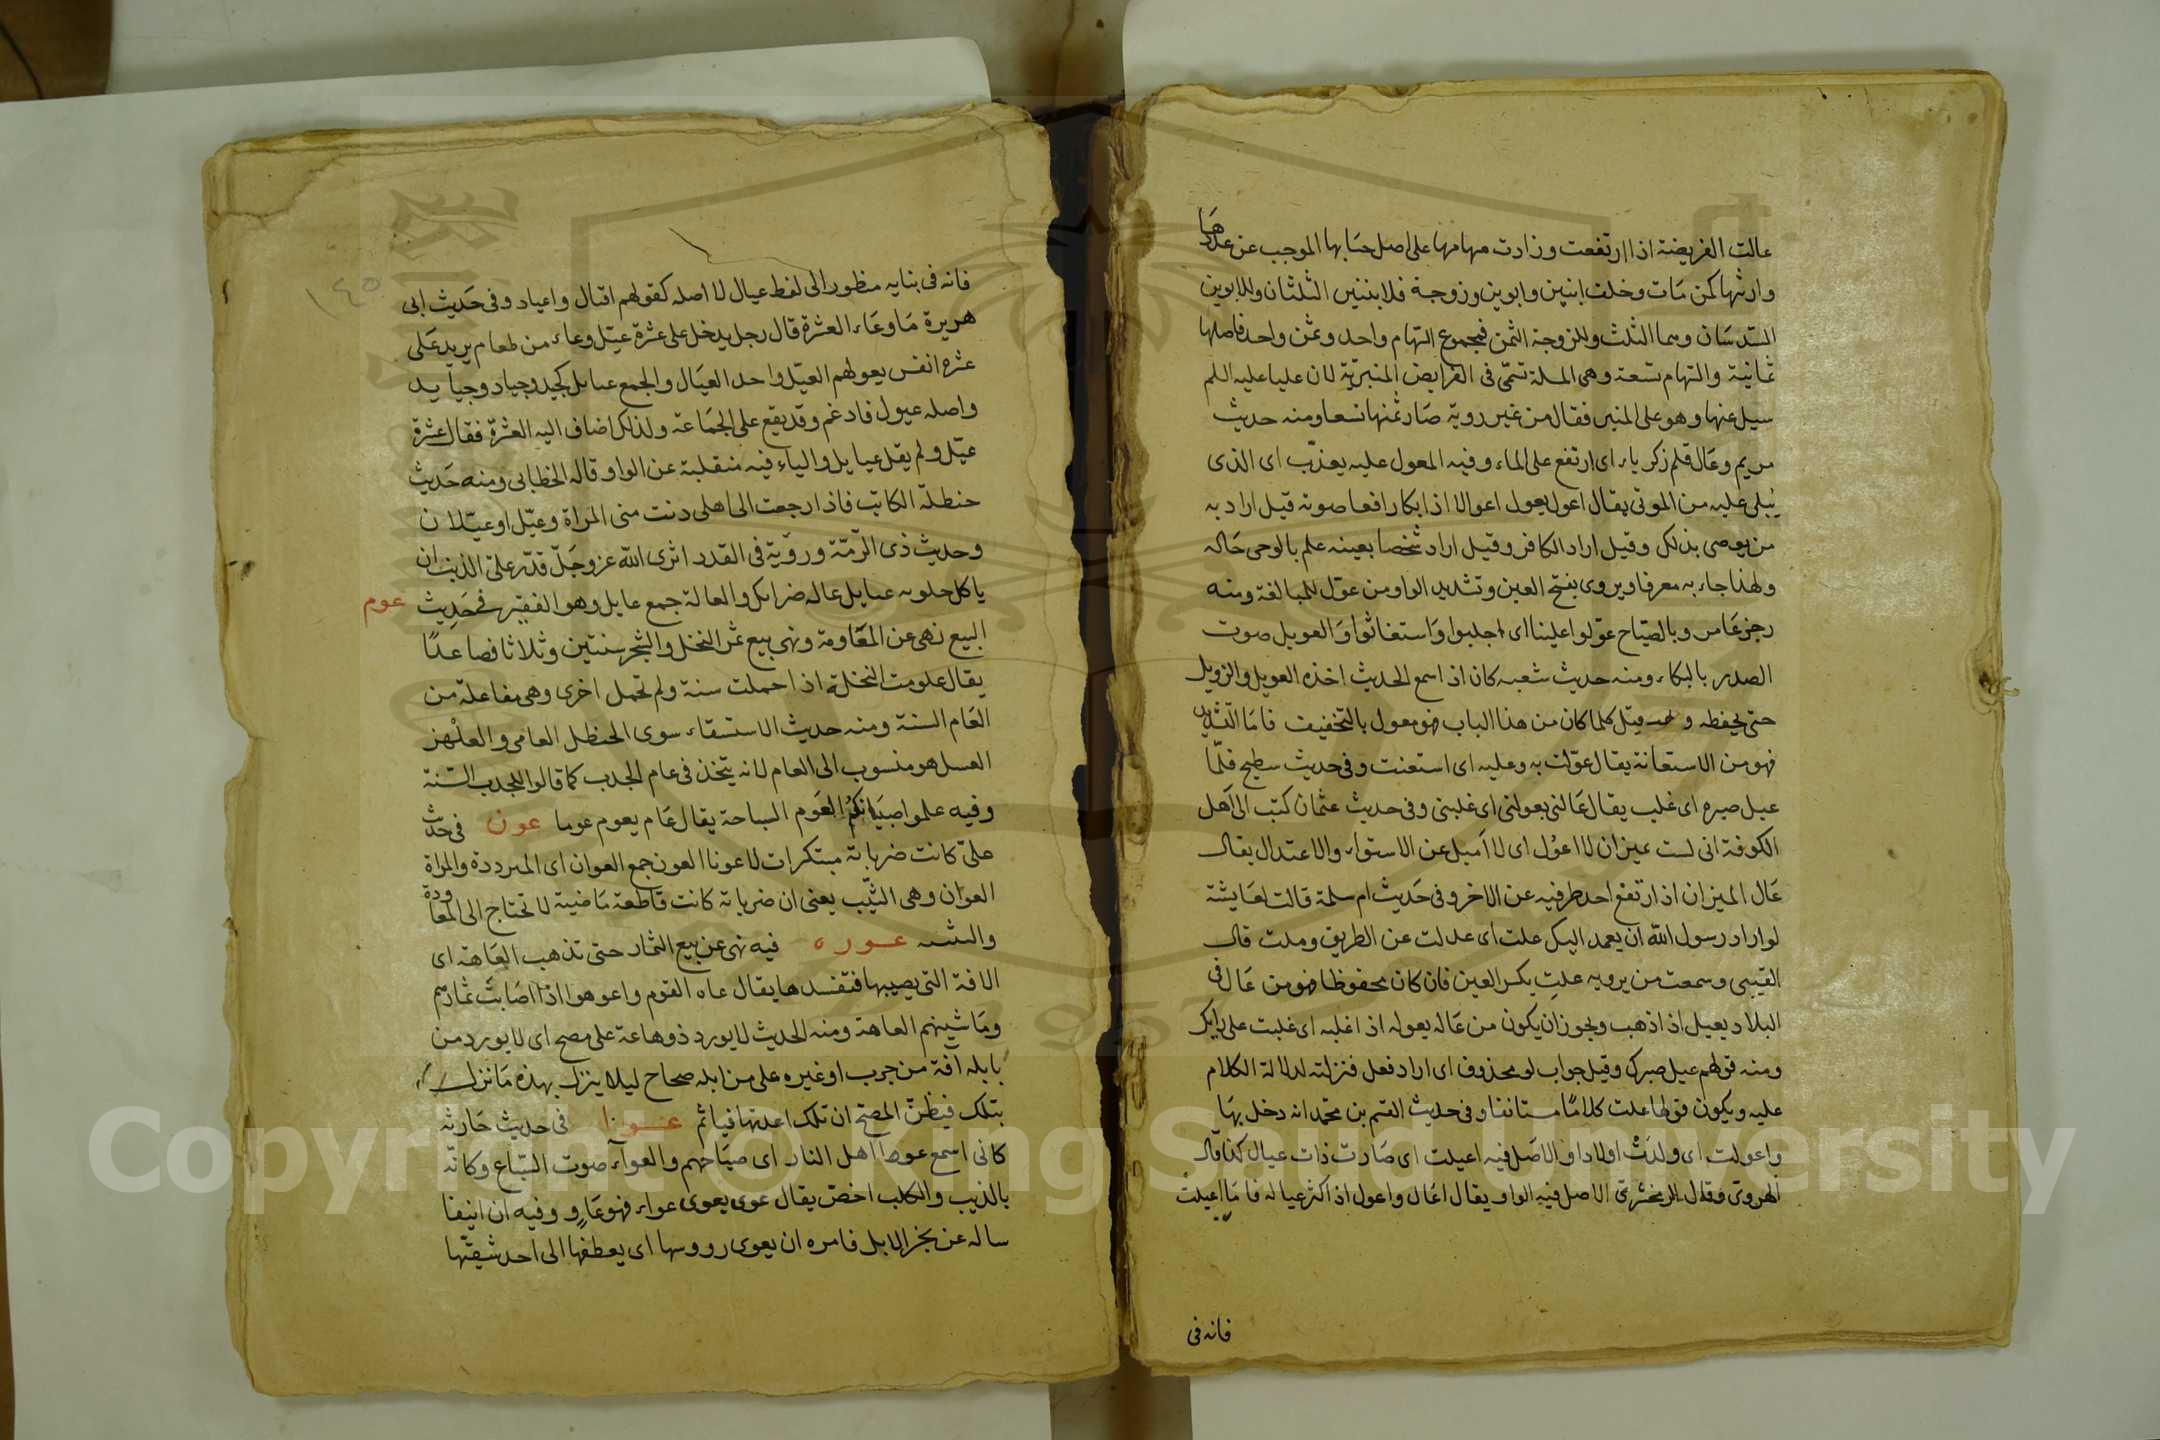 عالت الفريضة اذا ارتفعت وزادت سهامها على اصل حسابها الموجب عن عددها
وارثيها كمن مات وخلف ابنين وابوين وزوجة فللابنتين الثلثان وللابوين
السدسان وهما الثلث وللزوجة الثمن فمجموع السهام واحد وثمن واحد فاصلها
ثمانية والسهام تسعة وهى المسلة تسمى فى الفرايض المنبرية لان عليا عليه السلم
سيل عنها وهو على المنبر فقال من غير روية صار ثمنها تسعا ومنه حديث
مريم وعال قلم زكرياء اى ارتفع على الماء وفيه المعول عليه يعذب اى الذى
يبكى عليه من الموتى يقال اعول يعول اعوالا اذا بكا رافعا صوته قيل اراد به
من يوصى بذلك وقيل اراد الكافر وقيل اراد شخصا بعينه علم بالوحى حاله
ولهذا جاء به معرفا ويروى بفتح العين وتشديد الواو من عوّل للمبالغة ومنه
رجز عامر وبالصياح عوّلوا علينا اى اجلبوا واستغاثوا والعويل صوت
الصدر بالبكاء ومنه حديث شعبه كان اذ اسمع الحديث اخذه العويل والزويل
حتى يحفظه و قيل كلما كان من هذا الباب فهو معول بالتخفيف فاما التشديد
فهو من الاستعانة يقال عوّلت به وعليه اى استعنت وفى حديث سطيح فلمّا
عيل صبره اى غلب يقال عالنى يعولنى اى غلبنى وفى حديث عثمان كتب الى اهل
الكوفة انى لست بميزان لا اعول اى لا اميل عن الاستواء والاعتدال يقال
عال الميزان اذ ارتفع احد طرفيه عن الاخر وفى حديث ام سلمة قالت لعايشة
لو اراد رسول الله ان يعهد اليك علت اى عدلت عن الطريق وملت قال
القتيبى وسمعت من يرويه علت بكسر العين فان كان محفوظا فهو من عال فى
البلاد يعيل اذ اذهب ويجوز ان يكون من عاله يعوله اذ اغلبه اى غلبت على رايك
ومنه قولهم عيل صبرك وقيل جواب لو محذوف اى اراد فعل فتركته لدلالة الكلام
عليه ويكون قولها علت كلاما مستانفا وفى حديث القسم بن محمد انه دخل بها
واعولت اى ولدت اولادا والاصل فيه اعيلت اى صارت ذات عيال كذا قال
الهروى وقال الزمخشرى الاصل فيه الواو يقال اعال واعول اذ اكثر عياله فاما اعيلت
فانه فى
فانه فى بنايه منظور الى لفظ عيال لا اصله كقولهم اقيال واعياد وفى حديث ابى
هريرة ما وعاء العشرة قال رجل يدخل على عشرة عيّل وعاء من طعام يريد على
عشره انفس يعولهم العيّل واحد العيال والجمع عيايل كجيد وجياد وجيايد
واصله عيول فادغم وقد يقع على الجماعة ولذلك اضاف اليه العشرة فقال عشرة
عيّل ولم يقل عيايل والياء فيه منقلبة عن الواو قاله الخطابى ومنه حديث
حنظلة الكاتب فاذا رجعت الى اهلى دنت منى المراة وعيّل او عيّلان
وحديث ذى الرمّة وروية فى القدر اترى الله عزوجل قدّر على الذيب ان
ياكل حلوبه عيايل عاله ضرايك والعالة جمع عايل وهو الفقير فى حديث عوم
البيع نهى عن المعاومة ونهى بيع ثمر النخل والشجر سنتين وثلاثا فصاعدًا
يقال علومت النخلة اذ احملت سنة ولم تحمل اخرى وهى مفاعلة من
العام السنة ومنه حديث الاستسقاء سوى الحنظل العامى والعلهز
العسل هو منسوب الى العام لانه يتخذ فى عام الجدب كما قالوا للجدب السنة
وفيه علموا صبيانكم العوم السباحة يقال عام يعوم عوما عون فى حديث
علىّ كانت ضرباتة مبتكرات لا عونا العون جمع العوان اى المترددة والمراة
العوان وهى الثيّب يعنى ان ضرباتة كانت قاطعة ماضية لا تحتاج الى المعاودة
والتثنيه عوره فيه نهى عن بيع الثمار حتى تذهب العاهة اى
الافة التى يصيبها فتفسدها يقال عاه القوم واعوهوا اذا اصابت ثمارهم
وماشيتهم العاهة ومنه الحديث لا يورد ذوعاهة على مصح اى لا يورد من
بابله آفة من جرب او غيره على من ابله صحاح ليلا ينزل بهذه ما نزل
بتلك فيظنّ المصح ان تلك اعدتها فياثم عوا فى حديث حارثه
كانى اسمع عوا اهل النار اى صياحهم والعوآء صوت السباع وكانّه
بالذيب والكلب اخصّ يقال عوى يعوى عواء فهو عاوٍ وفيه ان انيفا
ساله عن نحر الابل فامره ان يعوى رووسها اى يعطفها الى احد شقيّها